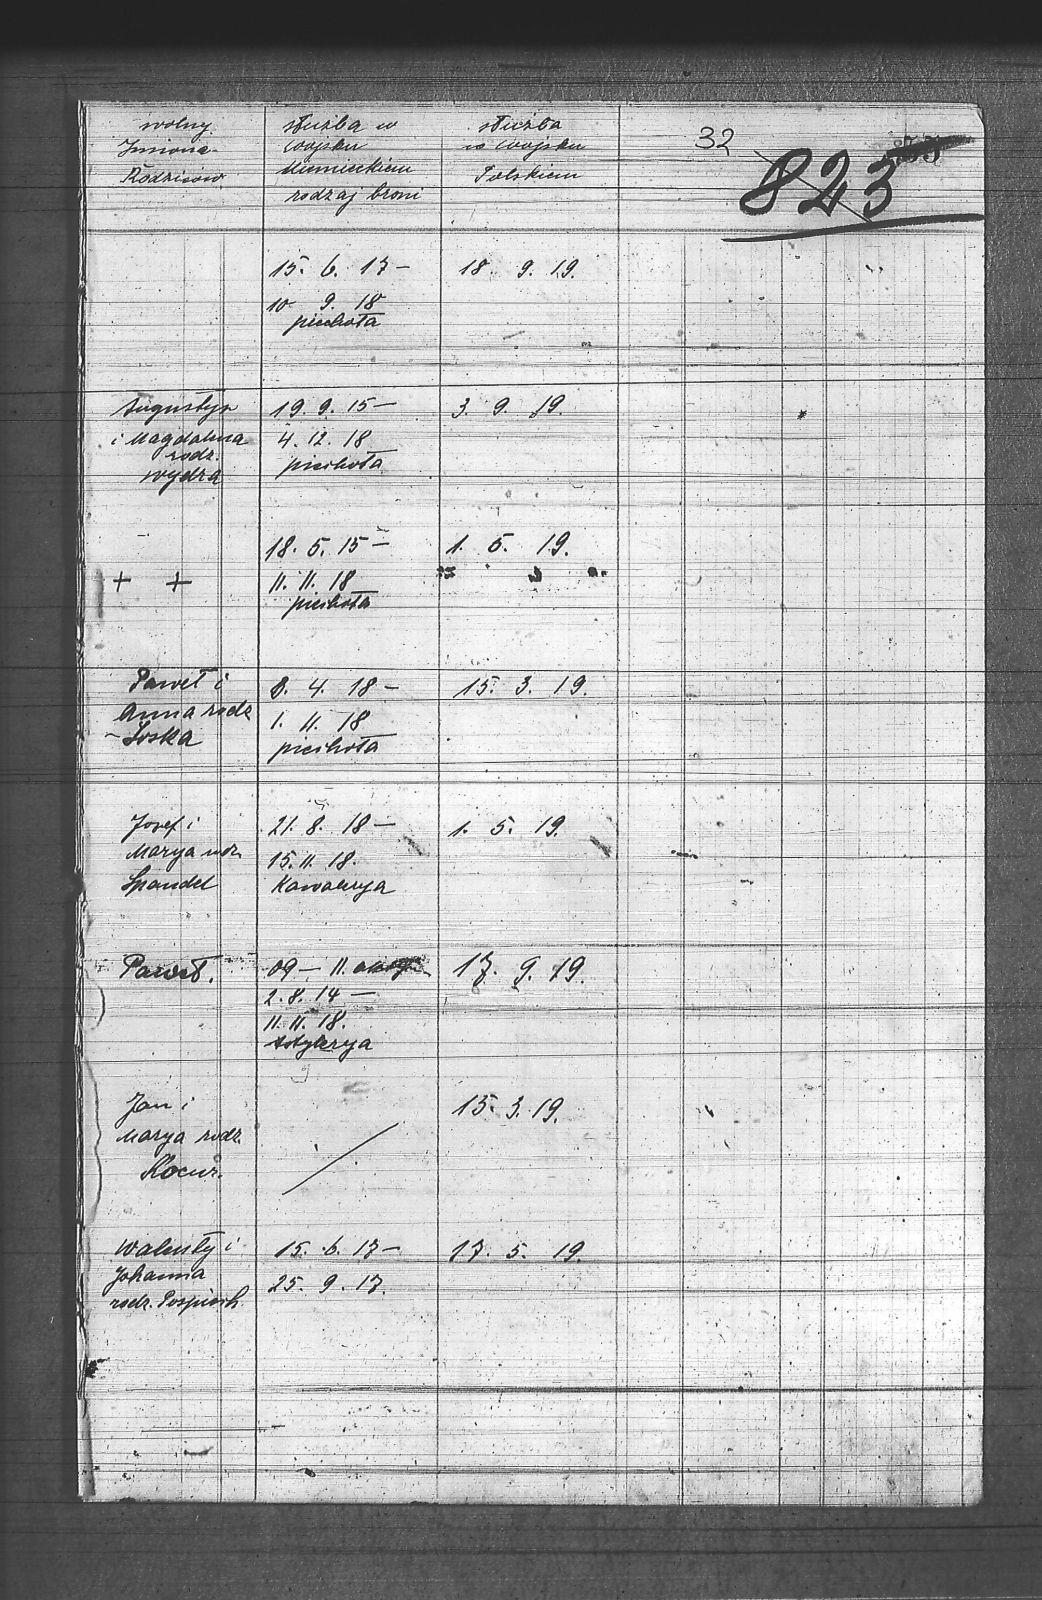 wolny
Imiona
Rodziców
służba w
wojsku
Niemieckiem
rodzaj broni
służba
w wojsku
Polskiem
32
823
15. 6. 17 –
10 9. 18
piechota
18. 9. 19.
Augustyn
i Magdalena
rodz.
Wydra
19. 9. 15 –
4. 12. 18
piechota
3. 9. 19.
+ +
18. 5. 15 –
11. 11. 18
piechota
1. 5. 19.
Paweł i
Anna rodz
Soska
8. 4. 18 –
1. 11. 18
piechota
15. 3. 19.
Josef i
Marya rodz.
Spandel
21. 8. 18 –
15. 11. 18.
Kawalerya
1. 5. 19.
Paweł.
09 – 11.
2. 8. 14 –
11. 11. 18.
Artylerya
17. 9. 19.
Jan i
Marya rodz.
Kocur.
/
15. 3. 19.
Walenty i
Johanna
rodz. Pospiech.
15. 6. 17 –
25. 9. 17.
17. 5. 19.